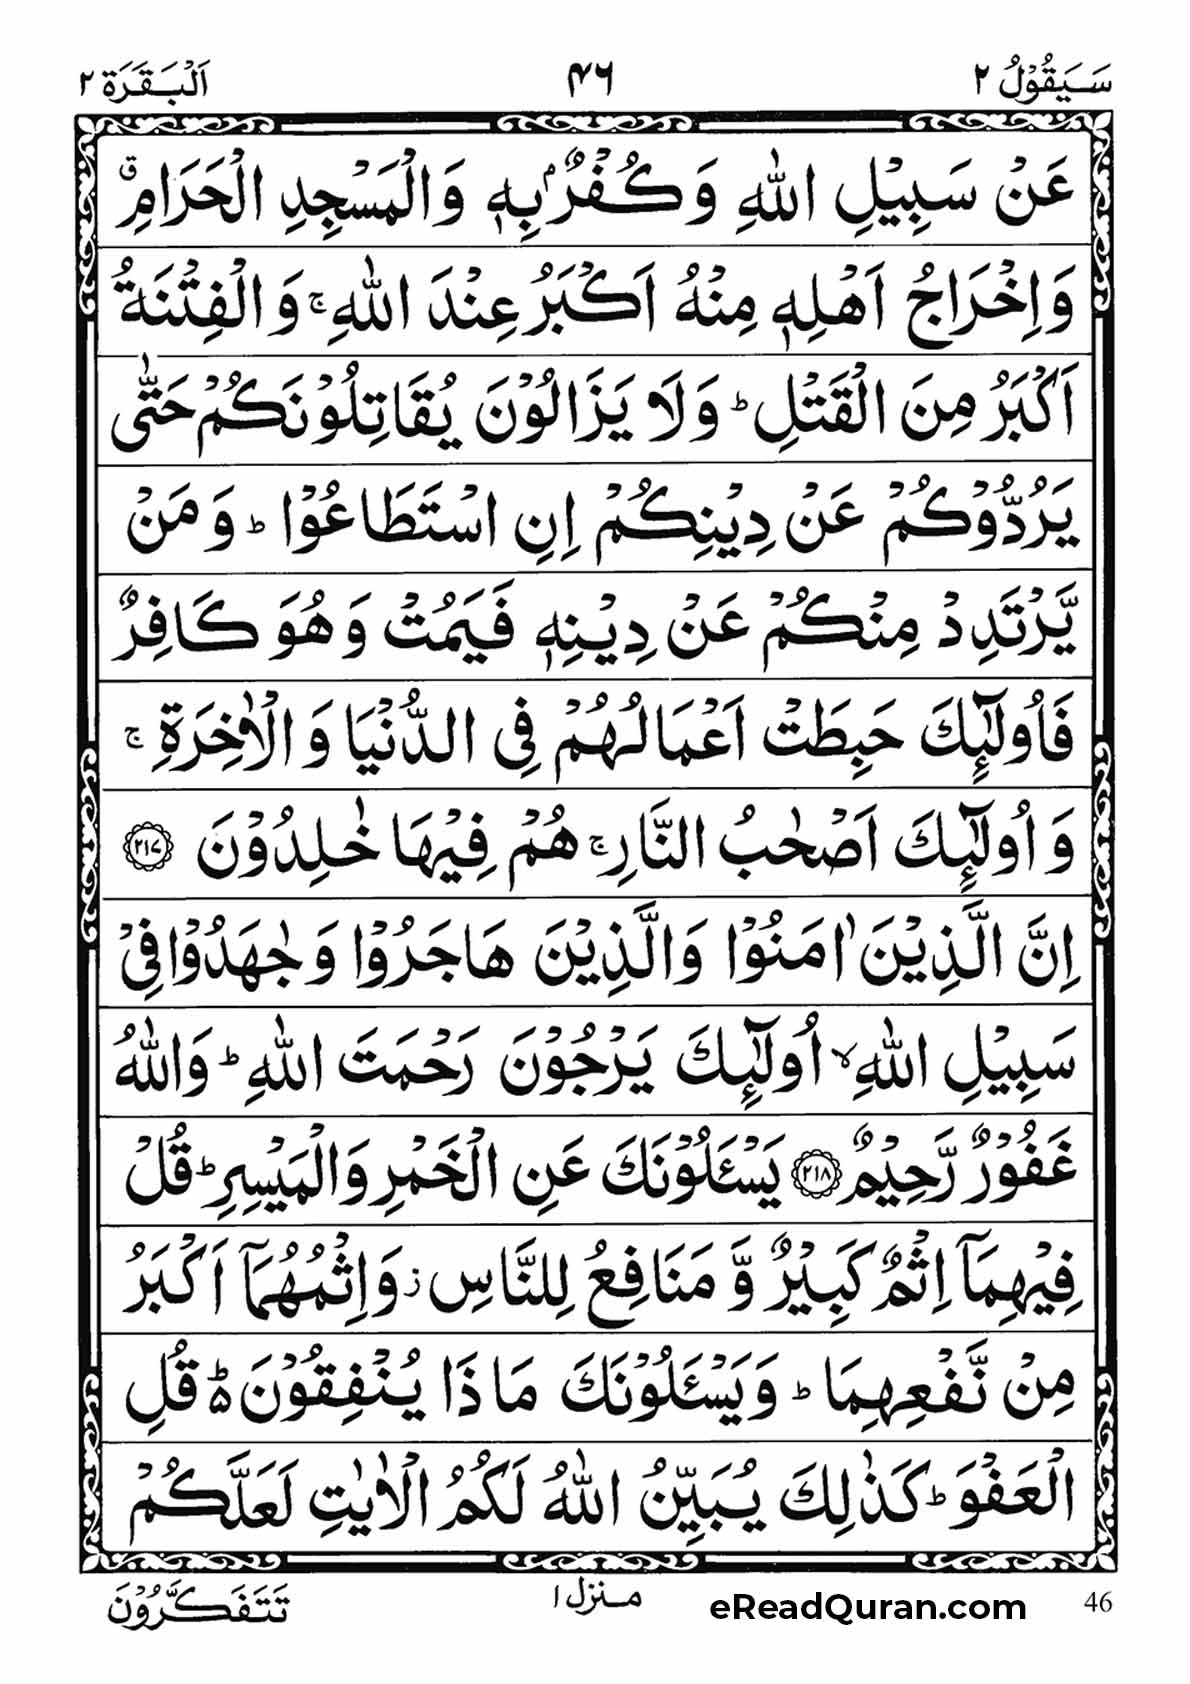 سَيَقُوْلُ ٢
٤٦
اَلْبَقَرَة ٢
عَنْ سَبِيْلِ اللّٰهِ وَ كُفْرٌۢ بِهٖ وَ الْمَسْجِدِ الْحَرَامِ ۗ
وَ اِخْرَاجُ اَهْلِهٖ مِنْهُ اَكْبَرُ عِنْدَ اللّٰهِ ۚ وَ الْفِتْنَةُ
اَكْبَرُ مِنَ الْقَتْلِ ؕ وَ لَا يَزَالُوْنَ يُقَاتِلُوْنَكُمْ حَتّٰى
يَرُدُّوْكُمْ عَنْ دِيْنِكُمْ اِنِ اسْتَطَاعُوْا ؕ وَ مَنْ
يَّرْتَدِدْ مِنْكُمْ عَنْ دِيْنِهٖ فَيَمُتْ وَ هُوَ كَافِرٌ
فَاُولٰٓئِكَ حَبِطَتْ اَعْمَالُهُمْ فِى الدُّنْيَا وَ الْاٰخِرَةِ ۚ
وَ اُولٰٓئِكَ اَصْحٰبُ النَّارِ ۚ هُمْ فِيْهَا خٰلِدُوْنَ ٢١٧
اِنَّ الَّذِيْنَ اٰمَنُوْا وَ الَّذِيْنَ هَاجَرُوْا وَ جٰهَدُوْا فِىْ
سَبِيْلِ اللّٰهِ ۙ اُولٰٓئِكَ يَرْجُوْنَ رَحْمَتَ اللّٰهِ ؕ وَ اللّٰهُ
غَفُوْرٌ رَّحِيْمٌ ٢١٨ يَسْـَٔلُوْنَكَ عَنِ الْخَمْرِ وَ الْمَيْسِرِ ؕ قُلْ
فِيْهِمَاۤ اِثْمٌ كَبِيْرٌ وَّ مَنَافِعُ لِلنَّاسِ ز وَ اِثْمُهُمَاۤ اَكْبَرُ
مِنْ نَّفْعِهِمَا ؕ وَ يَسْـَٔلُوْنَكَ مَا ذَا يُنْفِقُوْنَ ۵ؕ قُلِ
الْعَفْوَ ؕ كَذٰلِكَ يُبَيِّنُ اللّٰهُ لَكُمُ الْاٰيٰتِ لَعَلَّكُمْ
تَتَفَكَّرُوْنَ
منزل ١
eReadQuran.com
46